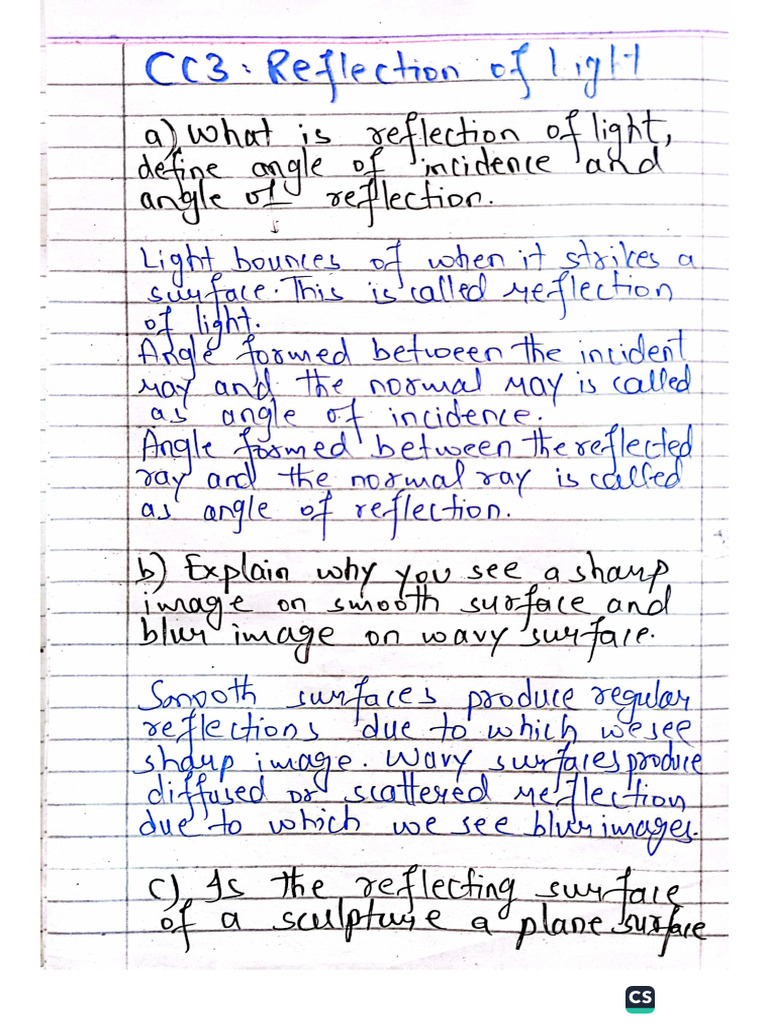 CC3: Reflection of Light
a) What is reflection of light,
define angle of incidence and
angle of reflection.
Light bounces of when it strikes a
surface. This is called reflection
of light.
Angle formed between the incident
ray and the normal ray is called
as angle of incidence.
Angle formed between the reflected
ray and the normal ray is called
as angle of reflection.
b) Explain why you see a sharp
image on smooth surface and
blur image on wavy surface.
Smooth surfaces produce regular
reflections due to which we see
sharp image. Wavy surfaces produce
diffused or scattered reflection
due to which we see blur images.
c) Is the reflecting surface
of a sculpture a plane surface
CS